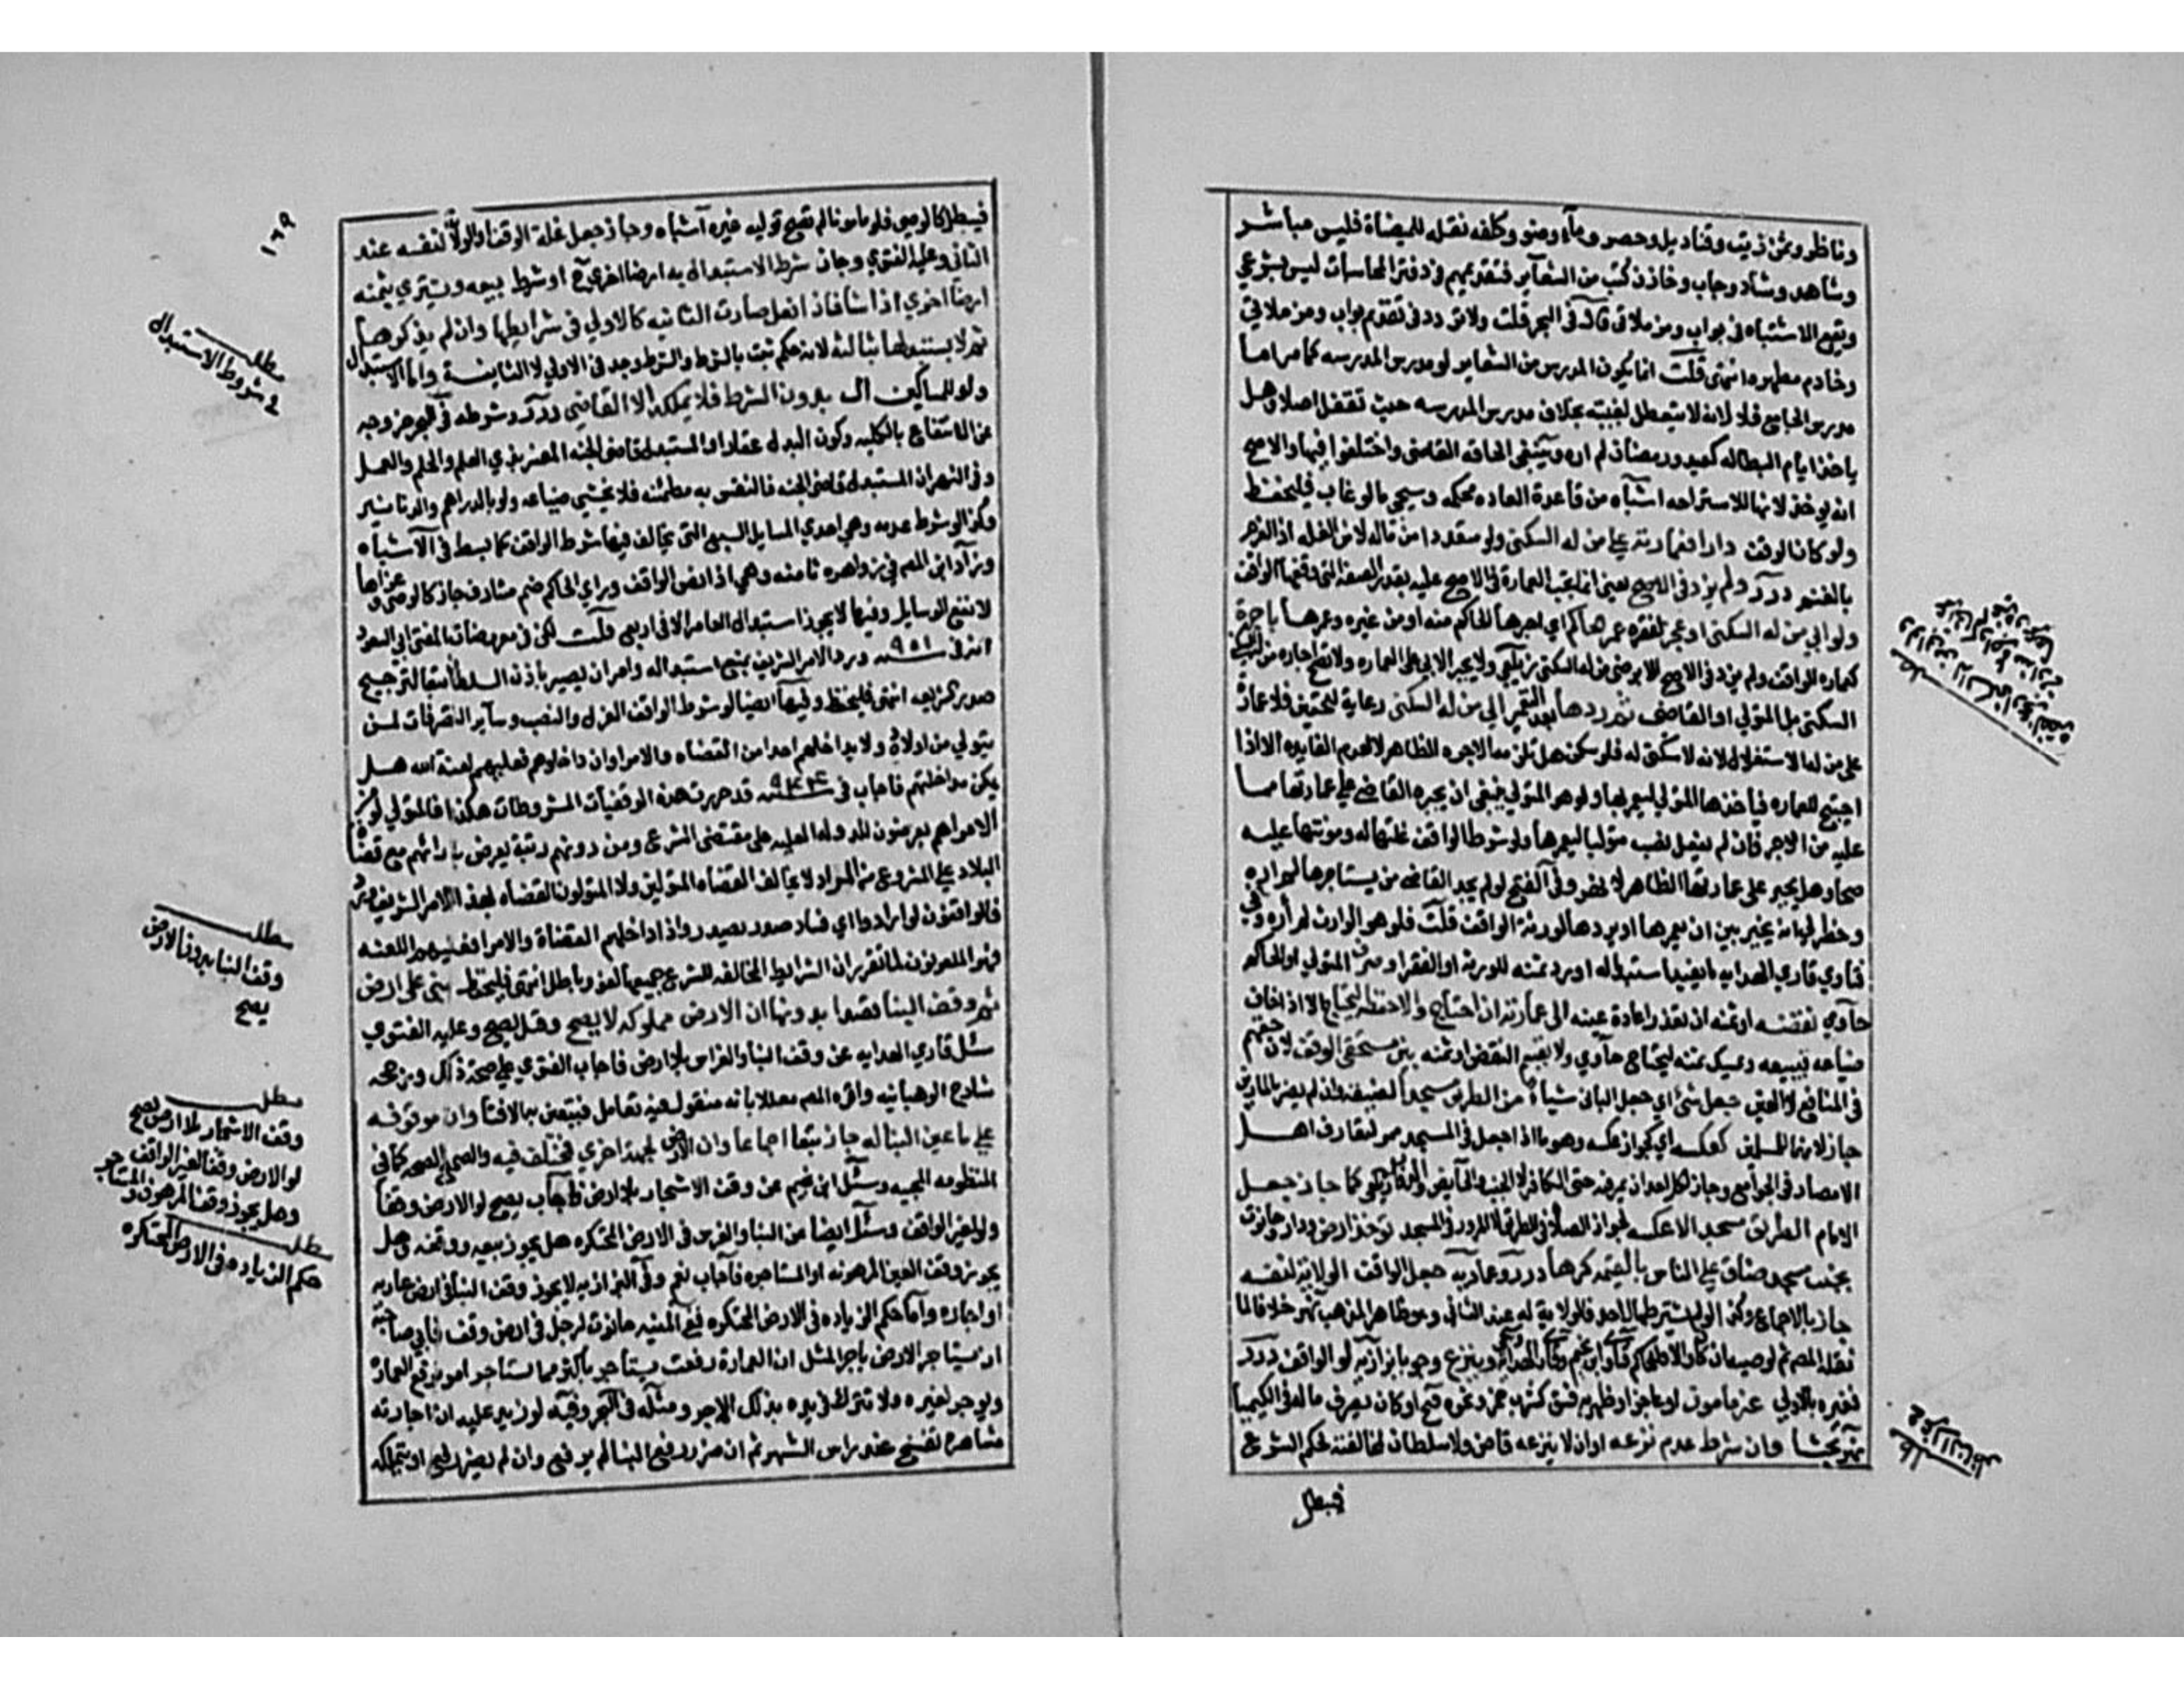 وناظر وثمن زيت وقناديل وحصر وماء وضو وكلفة نقله للميضاة فليس مباشر
وشاهد وشاد وجاب وخازن كتب من الشعاير فتقديمهم في دفتر المحاسبات ليس بشرعي
ويقع الاشتباه في بواب ومزملاتي قاله في البحر قلت ولا تردد في تقديم بواب ومزملاتي
وخادم مطهره انتهى قلت انما يكون المدرس من الشعاير لو مدرس المدرسه كما مر اما
مدرس الجامع فلا لانه لا يتعطل لغيبته بخلاف مدرس المدرسه حيث تقفل اصلا وهل
ياخذ ايام البطاله كعيد ورمضان لم اره وينبغي الحاقه القاضي واختلفوا فيها والاصح
انه يوخذ لانها للاستراحه اشباه من قاعدة العاده محكمه وسيجي ما لو غاب فليحفظ
ولو كان الوقف دارا فعمارته على من له السكنى ولو متعددا من ماله لا من الغله اذ الغرم
بالغنم درر ولم يزد في الاصح يعني انما تجب العمارة عليه بقدر الصفة التي وقفها الواقف
ولو ابى من له السكنى او عجز لفقره عمرها الحاكم اي اجرها الحاكم منه او من غيره وعمرها باجرة
كعماره الواقف ولم يزد في الاصح الا برضى من له السكنى زيلعي ولا يجبر الابي على العماره ولا تصح اجاره من له
السكنى بل المتولي او القاضي ثم ردها بعد التعمير الى من له السكنى رعاية للحقين فلا عمارة
على من له الاستغلال لانه لا سكنى له فلو سكن هل تلزمه الاجره الظاهر لا لعدم الفايده الا اذا
احتيج للعماره فياخذها المتولي ليعمر بها ولو هو المتولي ينبغي ان يجبره القاضي على عمارتها مما
عليه من الاجر فان لم يفعل نصب متوليا ليعمرها ولو شرط الواقف غلتها له ومونتها عليه
صحا وهل يجبر على عمارتها الظاهر لا نهر وفي الفتح لو لم يجد القاضي من يستاجرها لم اره
وخطر لي انه يخير بين ان يعمرها او يردها لورثة الواقف قلت فلو هو الوارث لم أره وفي
فتاوي قاري الهدايه ما يفيد استبداله او رد ثمنه للورثة او الفقرا وصرف المتولي او الحاكم
حاوي نقضه او ثمنه ان تعذر اعادة عينه الى عمارته ان احتاج والا حفظه ليحتاج الا اذا خاف
ضياعه فيبيعه ويمسك ثمنه ليحتاج حاوي ولا يقسم النقض او ثمنه بين مستحقي الوقف لان حقهم
في المنافع لا العين جعل شيء اي جعل الباني شياء من الطريق مسجدا لضيقه ولم يضر بالمارين
جاز لانهما للمسلمين كعكسه اي كجواز عكسه وهو ما اذا جعل في المسجد ممر لتعارف اهل
الامصار في الجوامع وجاز لكل احد ان يمر فيه حتى الكافر الا الجنب والحايض والدواب زيلعي كما جاز جعل
الامام الطريق مسجدا لا عكسه لجواز الصلاة في الطريق لا المرور في المسجد توخذ ارض ودار وحانوت
بجنب مسجد وضاق على الناس بالقيمه كرها درر وعماديه جعل الواقف الولاية لنفسه
جاز بالاجماع وكذا لو لم يشترطها لاحد فالولاية له عند الثاني وهو ظاهر المذهب نهر خلافا لما
نقله المصم ثم لوصيه ان كان والا فللحاكم فتاوي ابن نجيم وقاري الهداية وينزع وجوبا بزازيه لو الواقف درر
فغيره بالاولى غير مامون او عاجزا او ظهر به فسق كشرب خمر ونحوه فتح او كان يصرف ماله في الكيميا
نهر بحثا وان شرط عدم نزعه او ان لا ينزعه قاض ولا سلطان لمخالفته لحكم الشرع
فيبطل
مطلب
فيبطل كالوصي فلو مامونا لم تصح توليه غيره أشباه وجاز جعل غلة الوقف او الولاية لنفسه عند
الثاني وعليه الفتوي وجاز شرط الاستبدال به ارضا اخري ح او شرط بيعه ويشتري بثمنه
ارضا اخري اذا شا فاذا فعل صارت الثانيه كالاولي في شرايطها وان لم يذكرها
ثم لا يستبدلها بثالثه لانه حكم ثبت بالشرط والشرط وجد في الاولي لا الثانية واما الاستبدال
ولو للمساكين ال بدون الشرط فلا يملكه الا القاضي درر وشرطه في البحر خروجه
عن الانتفاع بالكليه وكون البدل عقارا والمستبدل قاضي الجنه المفسر بذي العلم والعمل
وفي النهر ان المستبدل قاضي الجنه فالنفس به مطمئنه فلا يخشي ضياعه ولو بالدراهم والدنانير
وكذا لو شرط عدمه وهي احدي المسايل السبع التي يخالف فيها شرط الواقف كما بسط في الأشباه
وزاد ابن المصم في زواهره ثامنه وهي اذا نص الواقف وراي الحاكم ضم مشارف جاز كالوصي وعزاها
لانفع الوسايل وفيها لا يجوز استبدال العامر الا في اربع قلت لكن في معروضات المفتي ابي السعود
انه في سنة ٩٥١ ورد الامر الشريف بمنع استبداله وامر ان يصير باذن السلطان تبعا لترجيح
صدر الشريعه انتهى فليحفظ وفيها ايضا لو شرط الواقف العزل والنصب وساير التصرفات لمن
يتولي من اولاده ولا يداخلهم احد من القضاه والامرا وان داخلوهم فعليهم لعنة الله هل
يمكن مداخلتهم فاجاب في سنة ٩٤٤ قد حررت هذه الوقفيات المشروطات هكذا فالمتولي لو من
الامرا هم يعرضون للدولة العليه على مقتضى الشرع ومن دونهم رتبة يعرض بارائهم مع قضاة
البلاد على المشروع من المواد لا يخالف القضاه المتولين ولا المتولون القضاه بهذا الامر الشريف
فالواقفون لو ارادوا اي فساد صدر يصدر واذا داخلهم القضاة والامرا فعليهم اللعنه
فهم الملعونون لما تقرر ان الشرايط المخالفه للشرع جميعها لغو وباطل انتهى فليحفظ بنى على ارض
ثم وقف البنا قصدا بدونها ان الارض مملوكه لا يصح وقيل يصح وعليه الفتوي
سئل قاري الهدايه عن وقف البنا والغراس بلا ارض فاجاب الفتوي على صحة ذلك ورجحه
شارح الوهبانيه واقره المصم معللا بانه منقول فيه تعامل فيتعين به الافتا وان موقوفه
على ما عين البنا له جاز تبعا اجماعا وان الارض لجهة اخري فمختلف فيه والصحيح الصحه كما في
المنظومه المحبيه وسئل ابن نجيم عن وقف الاشجار بلا ارض فاجاب يصح لو الارض وقفا
ولو لغير الواقف وسئل ايضا عن البنا والغرس في الارض المحتكره هل يجوز بيعه ووقفه وهل
يجوز وقف العين المرهونه او المستاجره فاجاب نعم وفي البزازيه لا يجوز وقف البنا في ارض عاريه
او اجاره واما حكم الزياده في الارض المحتكره ففي المنيه حانوت لرجل في ارض وقف فابي صاحبه
ان يستاجر الارض باجر المثل ان العمارة رفعت يستاجر باكثر مما استاجر امر برفع العمارة
ويوجر لغيره ولا تترك في يده بذلك الاجر ومثله في البحر وفيه لو زيد عليه ان اجارته
مشاهرة تفسخ عند راس الشهر ثم ان ضر رفع البنا لم يرفع وان لم يضر رفع او يتملكه
١٦٩
مطلب
في شروط الاستبدال
مطلب
وقف البنا بدون الارض
يصح
مطلب
وقف الاشجار بلا ارض يصح
لو الارض وقفا لغير الواقف
وهل يجوز وقف المرهون والمستاجر
مطلب
حكم الزياده في الارض المحتكره